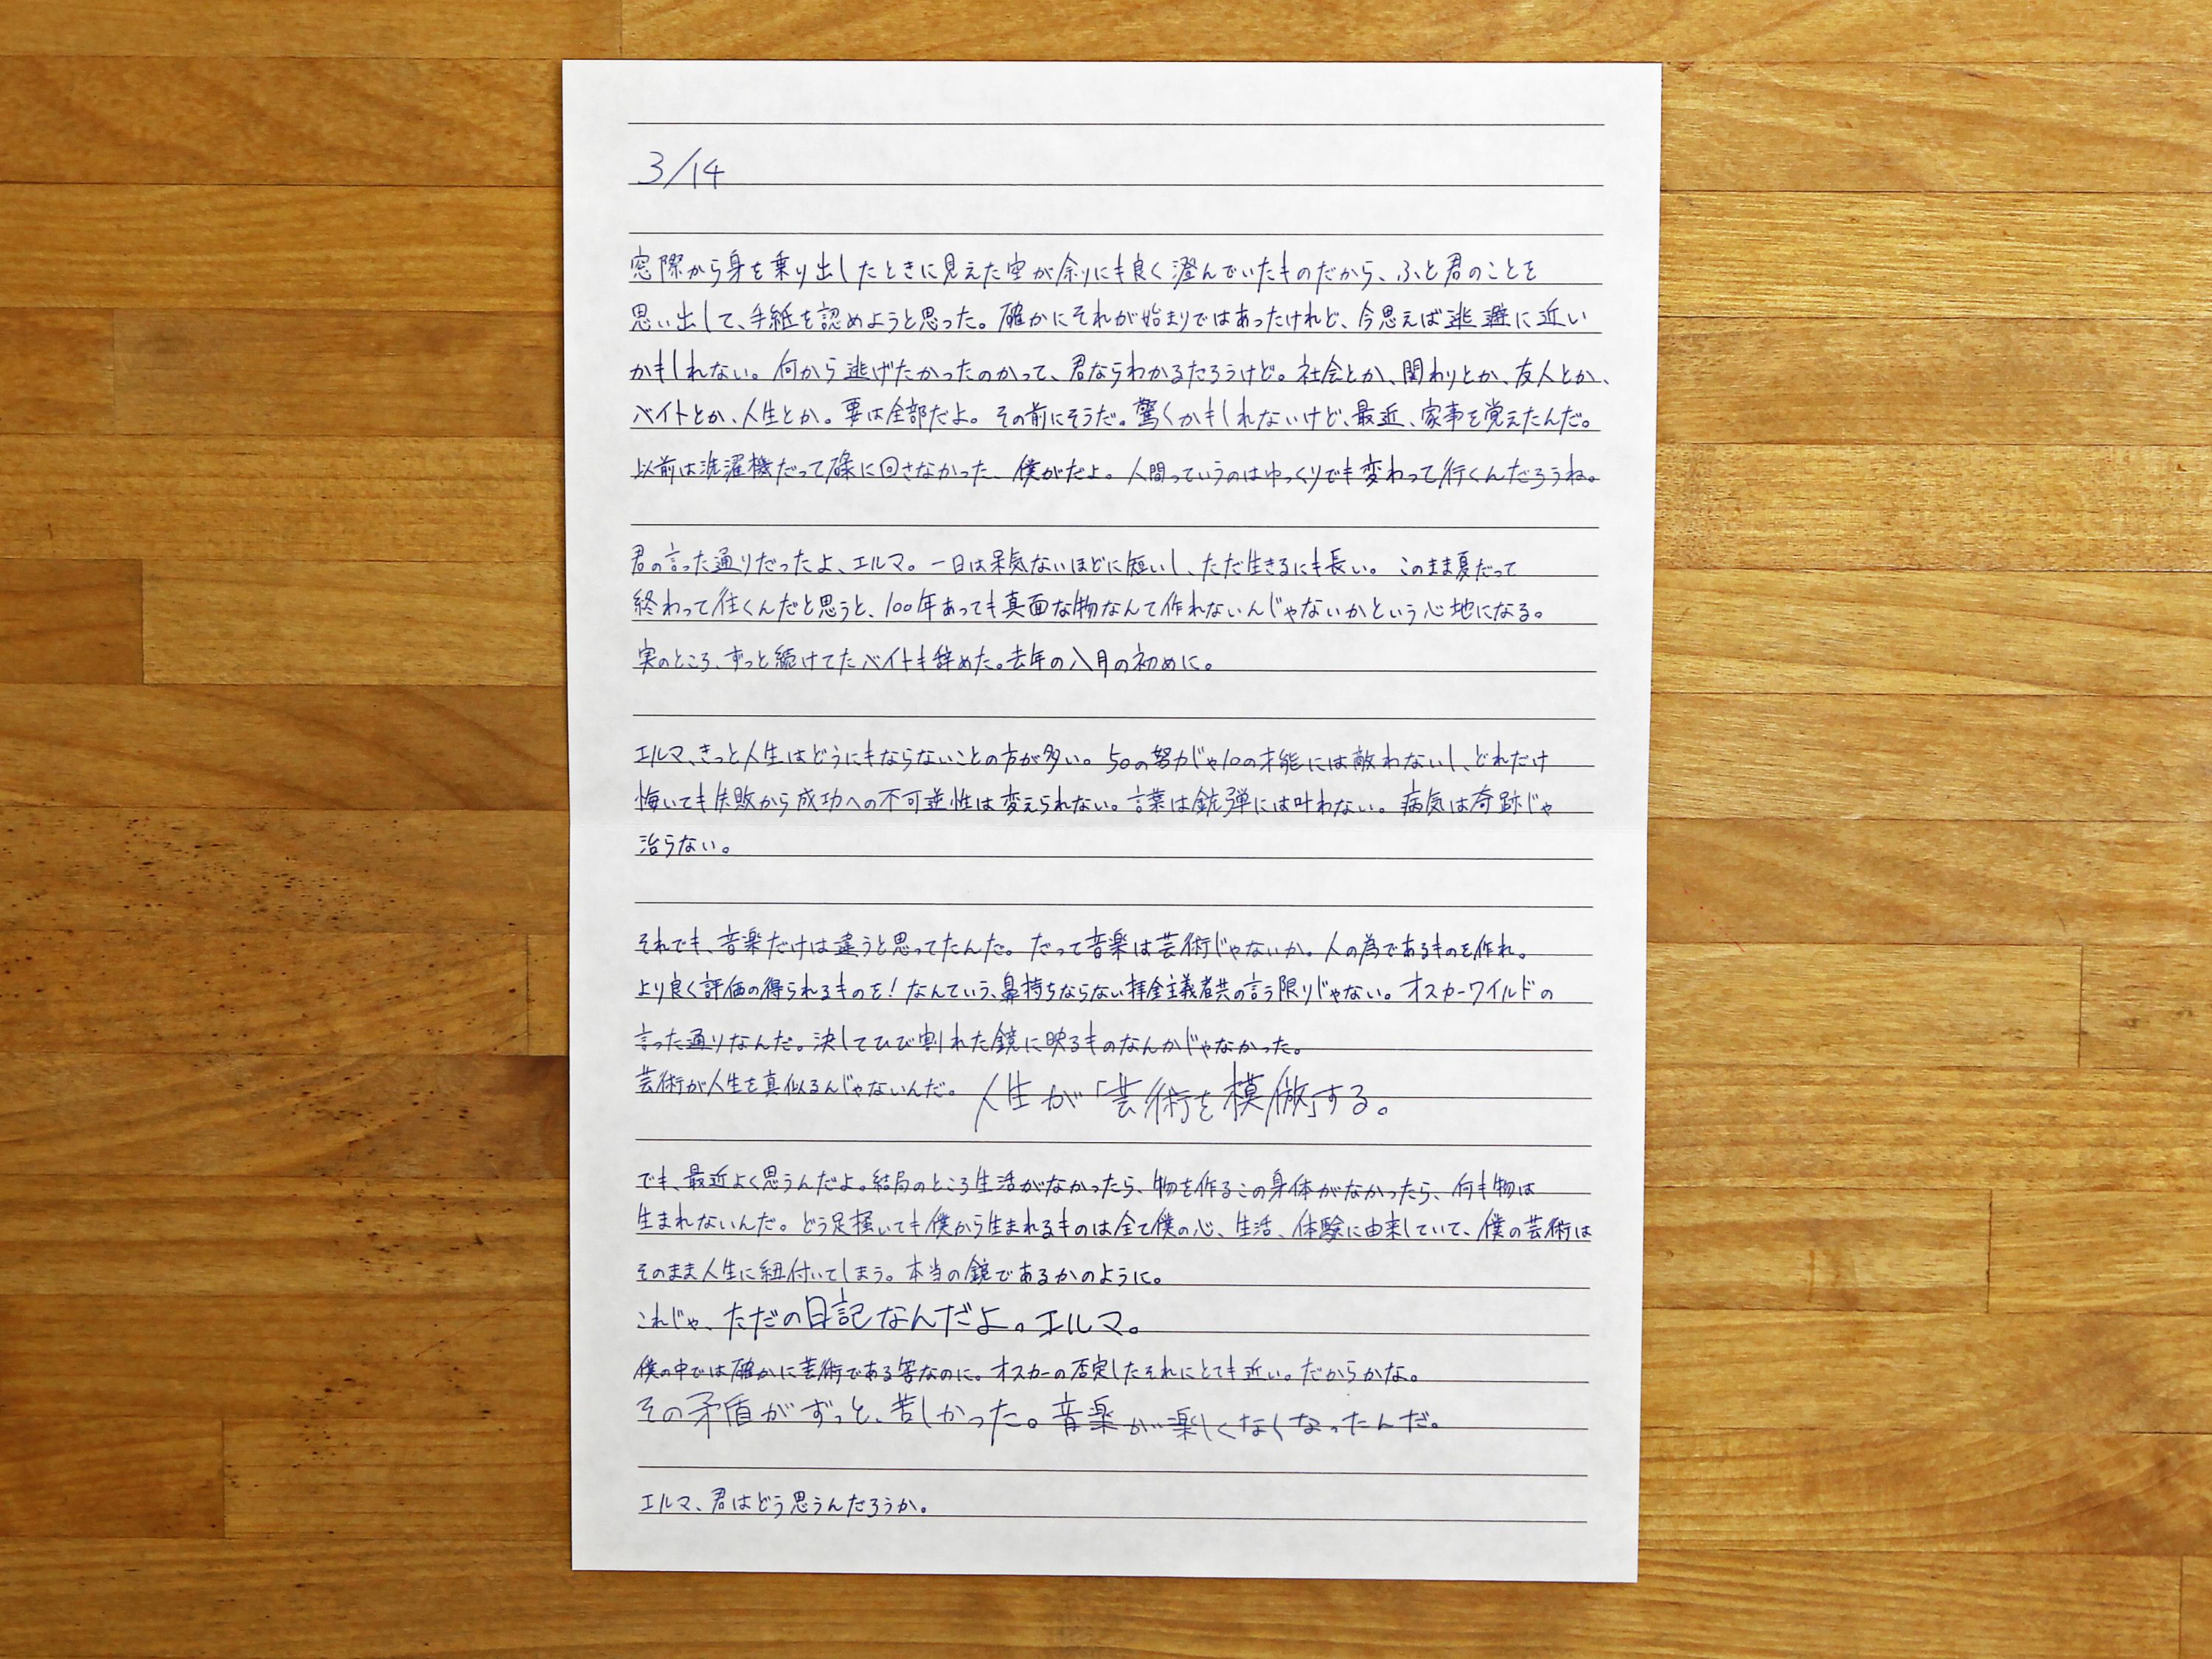 3/14
窓際から身を乗り出したときに見えた空が余りにも良く澄んでいたものだから、ふと君のことを
思い出して、手紙を認めようと思った。確かにそれが始まりではあったけれど、今思えば逃避に近い
かもしれない。何から逃げたかったのかって、君ならわかるだろうけど。社会とか、関わりとか、友人とか、
バイトとか、人生とか。要は全部だよ。その前にそうだ。驚くかもしれないけど、最近、家事を覚えたんだ。
以前は洗濯機だって碌に回さなかった、僕がだよ。人間っていうのはゆっくりでも変わって行くんだろうね。
君の言った通りだったよ、エルマ。一日は呆気ないほどに短いし、ただ生きるにも長い。このまま夏だって
終わって往くんだと思うと、100年あっても真面な物なんて作れないんじゃないかという心地になる。
実のところ、ずっと続けてたバイトも辞めた。去年の八月の初めに。
エルマ、きっと人生はどうにもならないことの方が多い。50の努力じゃ10の才能には敵わないし、どれだけ
悔いても失敗から成功への不可逆性は変えられない。言葉は銃弾には叶わない。病気は奇跡じゃ
治らない。
それでも、音楽だけは違うと思ってたんだ。だって音楽は芸術じゃないか。人の為であるものを作れ。
より良く評価の得られるものを！なんていう、鼻持ちならない拝金主義者共の言う限りじゃない。オスカーワイルドの
言った通りなんだ。決してひび割れた鏡に映るものなんかじゃなかった。
芸術が人生を真似るんじゃないんだ。人生が「芸術を模倣」する。
でも、最近よく思うんだよ。結局のところ生活がなかったら、物を作るこの身体がなかったら、何も物は
生まれないんだ。どう足掻いても僕から生まれるものは全て僕の心、生活、体験に由来していて、僕の芸術は
そのまま人生に紐付いてしまう。本当の鏡であるかのように。
これじゃ、ただの日記なんだよ。エルマ。
僕の中では確かに芸術である筈なのに。オスカーの否定したそれにとても近い。だからかな。
その矛盾がずっと、苦しかった。音楽が楽しくなくなったんだ。
エルマ、君はどう思うんだろうか。